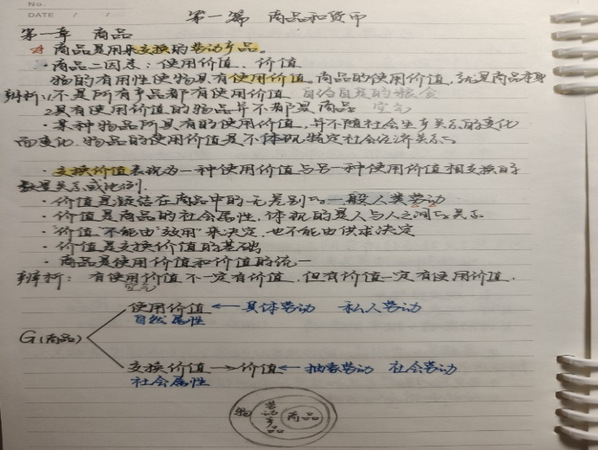 No.
DATE / /
第一篇 商品和货币
第一章 商品
☆ 商品是用来交换的劳动产品。
· 商品二因素：使用价值、价值
物的有用性使物具有使用价值，商品的使用价值，就是商品本身
辨析：1.不是所有产品都有使用价值 自给自足的粮食
2.具有使用价值的物品并不都是商品 空气
· 某种物品所具有的使用价值，并不随社会生产关系的变化
而变化，物品的使用价值是不体现特定社会经济关系
· 交换价值表现为一种使用价值与另一种使用价值相交换的
数量关系或比例.
· 价值是凝结在商品中的无差别的一般人类劳动
· 价值是商品的社会属性，体现的是人与人之间的关系
· 价值不能由“效用”来决定，也不能由供求决定
· 价值是交换价值的基础
· 商品是使用价值和价值的统一
辨析： 有使用价值不一定有价值，但有价值一定有使用价值.
空气
使用价值 ← 具体劳动 私人劳动
自然属性
G(商品)
交换价值 → 价值 ← 抽象劳动 社会劳动
社会属性
物 劳动产品 商品